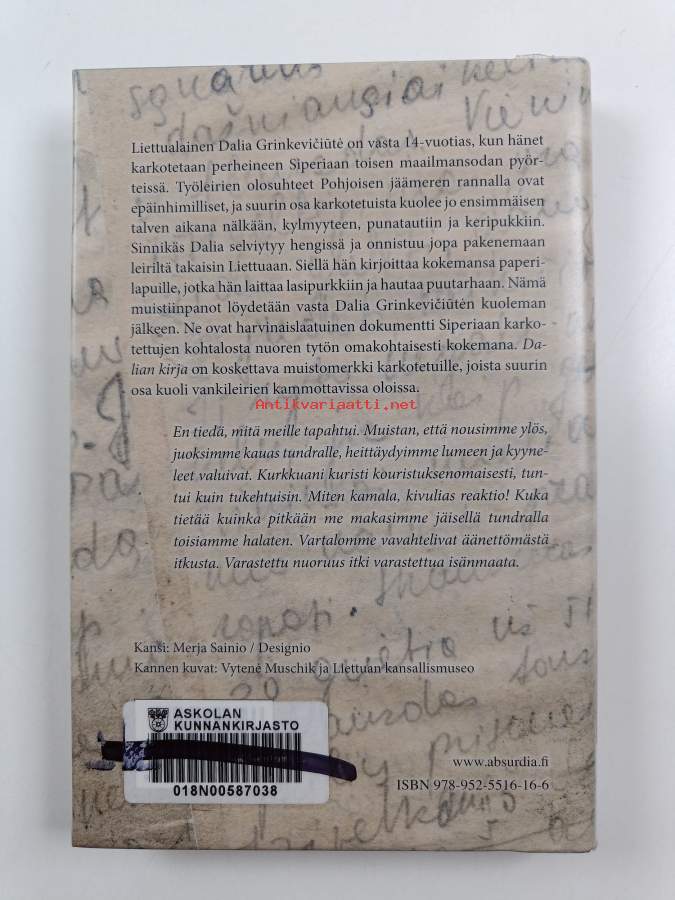 Liettualainen Dalia Grinkevičiūtė on vasta 14-vuotias, kun hänet
karkotetaan perheineen Siperiaan toisen maailmansodan pyör-
teissä. Työleirien olosuhteet Pohjoisen jäämeren rannalla ovat
epäinhimilliset, ja suurin osa karkotetuista kuolee jo ensimmäisen
talven aikana nälkään, kylmyyteen, punatautiin ja keripukkiin.
Sinnikäs Dalia selviytyy hengissä ja onnistuu jopa pakenemaan
leiriltä takaisin Liettuaan. Siellä hän kirjoittaa kokemansa paperi-
lapuille, jotka hän laittaa lasipurkkiin ja hautaa puutarhaan. Nämä
muistiinpanot löydetään vasta Dalia Grinkevičiūtėn kuoleman
jälkeen. Ne ovat harvinaislaatuinen dokumentti Siperiaan karko-
tettujen kohtalosta nuoren tytön omakohtaisesti kokemana. Da-
lian kirja on koskettava muistomerkki karkotetuille, joista suurin
osa kuoli vankileirien kammottavissa oloissa.
Antikvariaatti.net
En tiedä, mitä meille tapahtui. Muistan, että nousimme ylös,
juoksimme kauas tundralle, heittäydyimme lumeen ja kyyne-
leet valuivat. Kurkkuani kuristi kouristuksenomaisesti, tun-
tui kuin tukehtuisin. Miten kamala, kivulias reaktio! Kuka
tietää kuinka pitkään me makasimme jäisellä tundralla
toisiamme halaten. Vartalomme vavahtelivat äänettömästä
itkusta. Varastettu nuoruus itki varastettua isänmaata.
Kansi: Merja Sainio / Designio
Kannen kuvat: Vytenė Muschik ja Liettuan kansallismuseo
ASKOLAN
KUNNANKIRJASTO
018N00587038
www.absurdia.fi
ISBN 978-952-5516-16-6